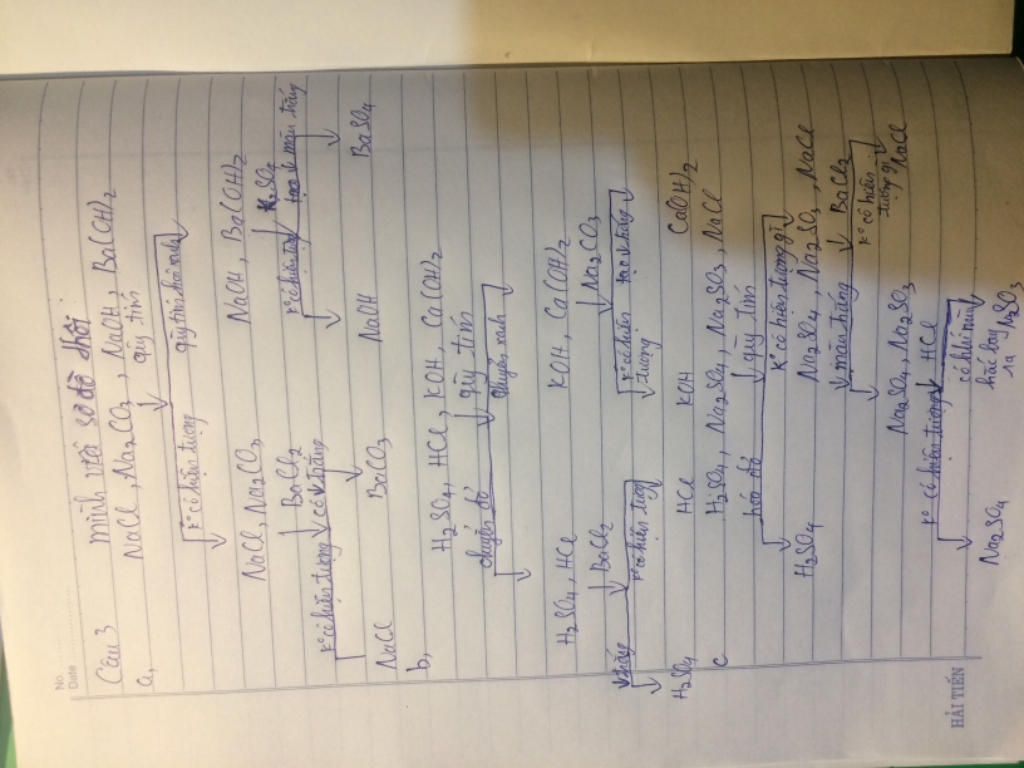 No.
Date
Câu 3 mình vẽ sơ đồ thôi
a, NaCl, Na2CO3, NaOH, Ba(OH)2
quỳ tím
k° có hiện tượng quỳ tím hoá xanh
NaCl, Na2CO3 NaOH, Ba(OH)2
BaCl2
k° có hiện tượng có ↓ trắng k° có hiện tượng tạo ↓ màu trắng
NaCl BaCO3 NaOH BaSO4
b, H2SO4, HCl, KOH, Ca(OH)2
quỳ tím
chuyển đỏ chuyển xanh
H2SO4, HCl KOH, Ca(OH)2
BaCl2 Na2CO3
↓ trắng k° có hiện tượng k° có hiện tượng tạo ↓ trắng
H2SO4 HCl KOH Ca(OH)2
c H2SO4, Na2SO4, Na2SO3, NaCl
quỳ tím
hóa đỏ k° có hiện tượng gì
H2SO4 Na2SO4, Na2SO3, NaCl
BaCl2
↓ màu trắng k° có hiện tượng gì
Na2SO4, Na2SO3 NaCl
HCl
k° có hiện tượng có khí mùi hắc bay ra
Na2SO4 Na2SO3
HẢI TIẾN